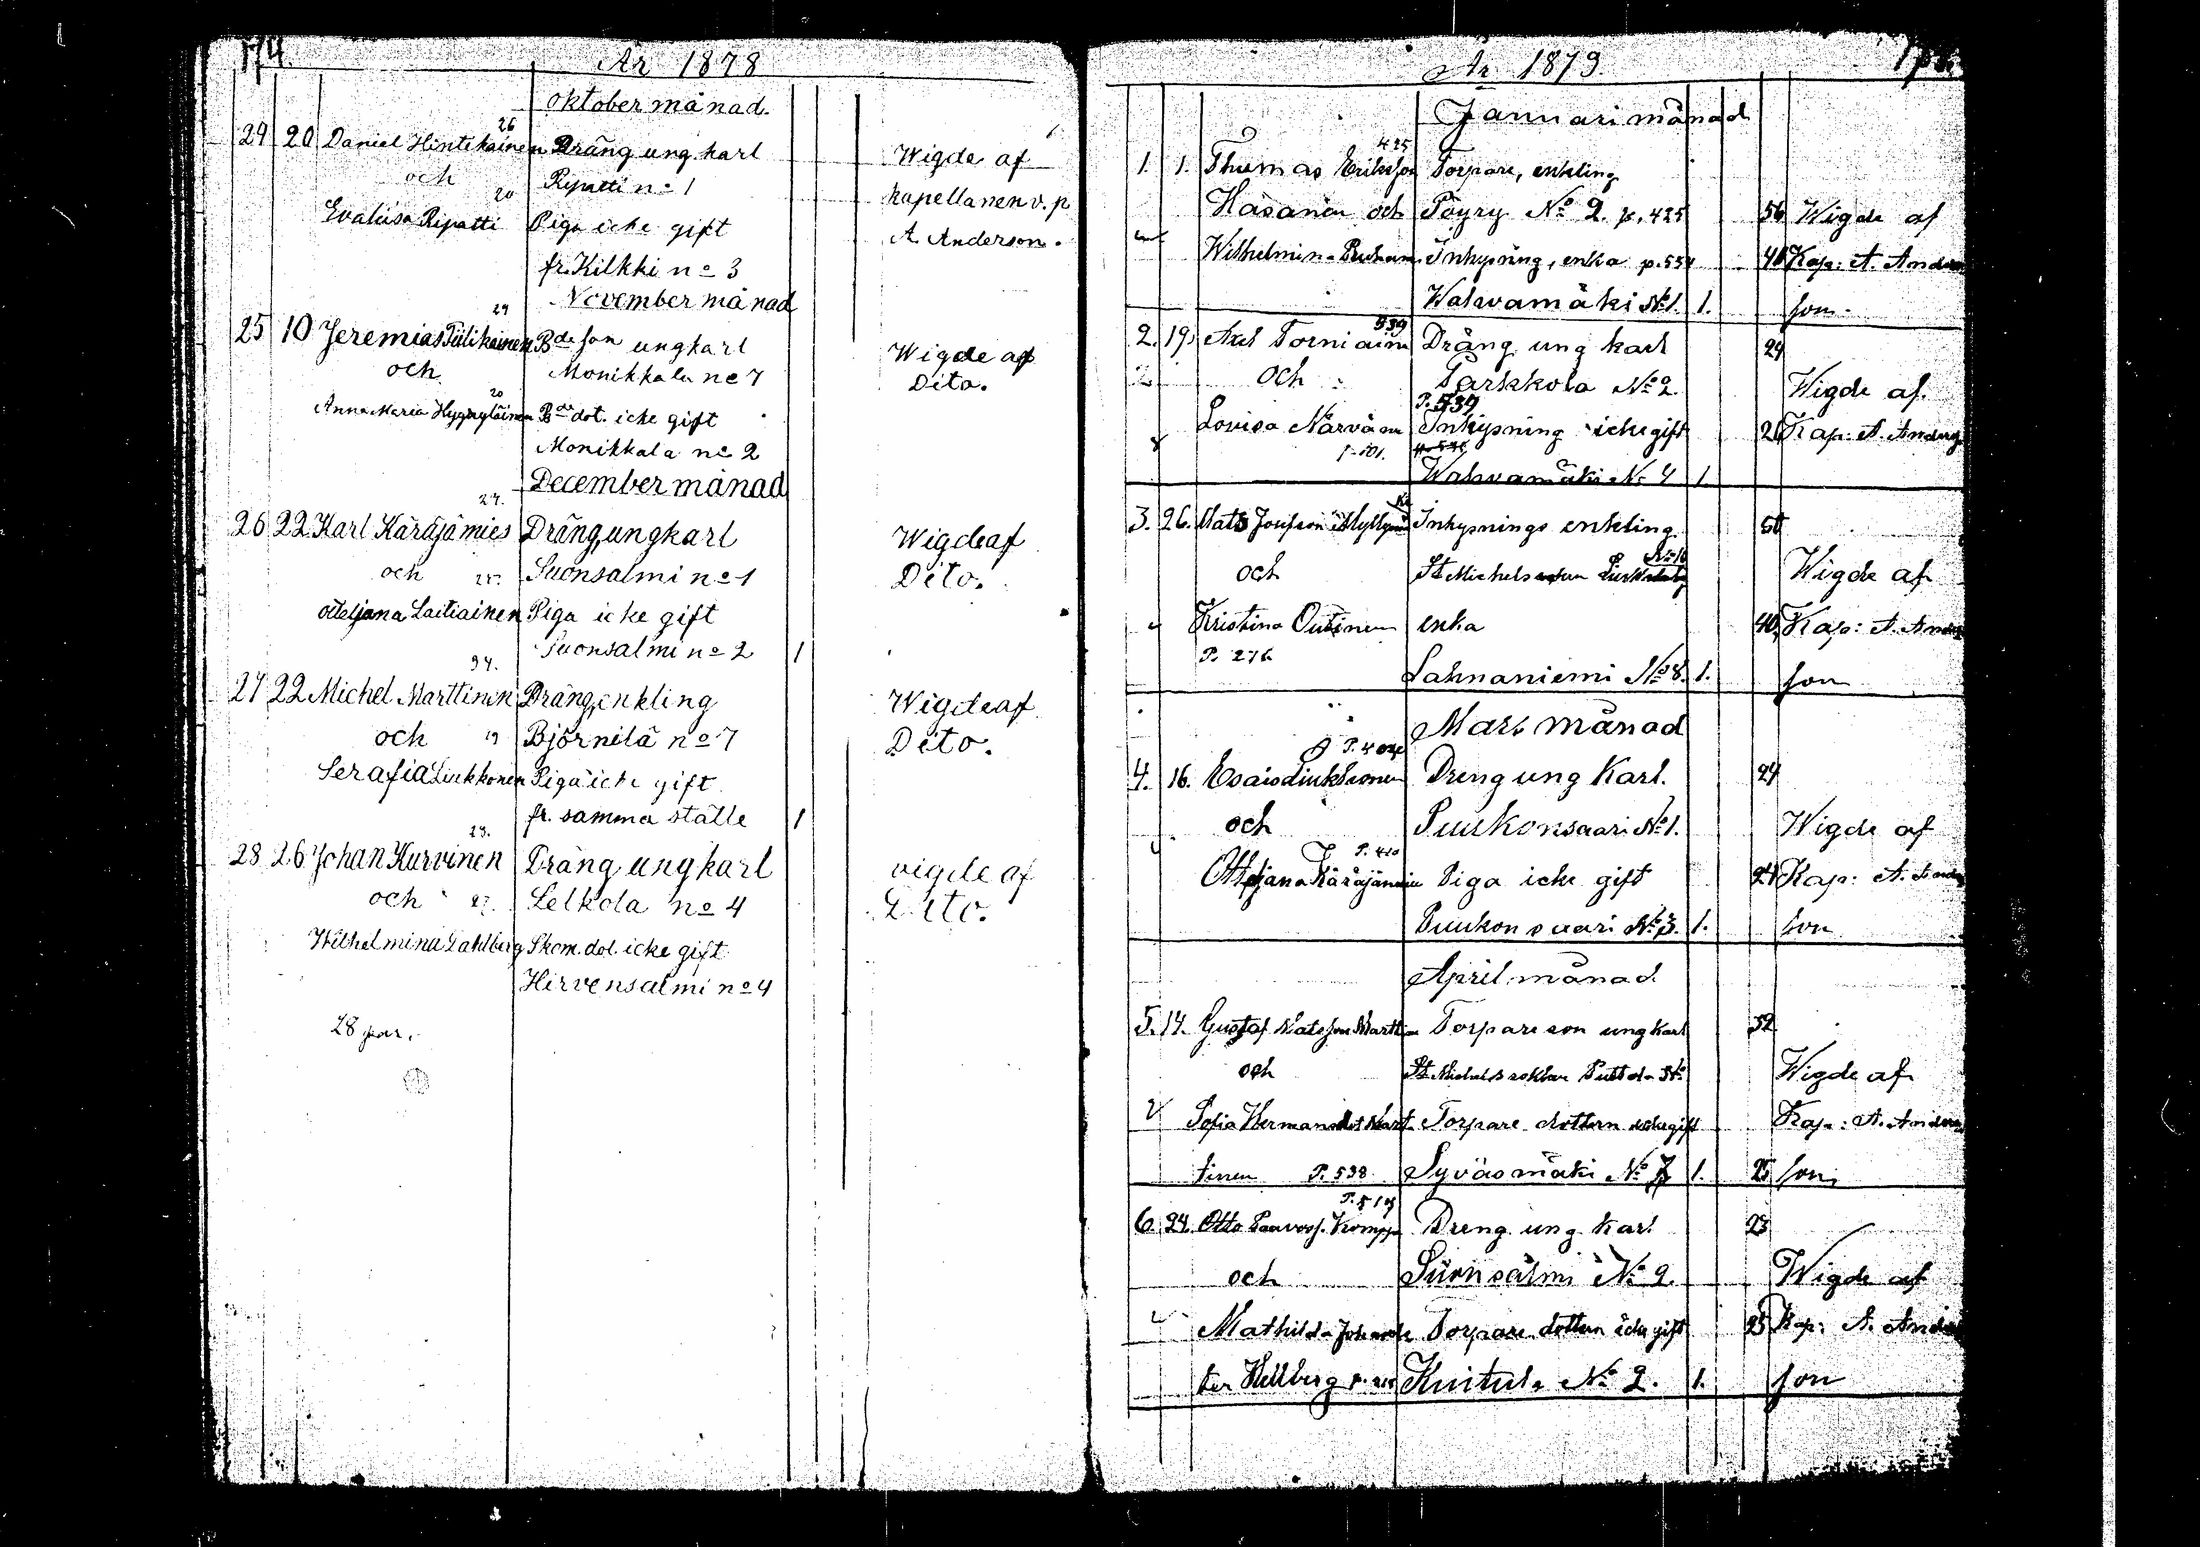 174
År 1878
oktober månad.
26
24 20 Daniel Hintikainen Dräng ungkarl
och Ripatti no 1
20
Evaliisa Ripatti Piga icke gift
fr. Kilkki no 3
Wigde af
kapellanen v. p
A. Anderson.
November månad
24
25 10 Jeremias Piilikainen Bde son ungkarl
och Monikkala no 7
20
Anna Maria Hyyryläinen Bde dot. icke gift
Monikkala no 2
Wigde af
Dito.
December månad
24.
26 22 Karl Käräjämies Dräng, ungkarl
och Suonsalmi no 1
Otteljana Laitiainen Piga icke gift
Suonsalmi no 2 1
Wigde af
Dito.
34.
27 22 Michel Marttinen Dräng, enkling
och 19 Björnilä no 7
Serafia Liukkonen Piga icke gift
fr. samma ställe 1
Wigde af
Dito.
23.
28 26 Johan Kurvinen Dräng ungkarl
och 27. Lelkola no 4
Wilhelmina Dahlberg Skom. dot. icke gift
Hirvensalmi no 4
vigde af
Dito.
28 par.
År 1879.
Januari månad
425
1. 1. Thomas Eriksson Torpare, enkling
Häsänen och Pöyry No 2. p. 425 56 Wigde af
Wilhelmina Inhysning, enka p. 554 40 Kap: A. Ander
Wahvamäki No 1. 1. son.
539
2. 19. Axel Torniainen Dräng ung karl 24
och Parkkola No 2. Wigde af
P. 539
Lovisa Närvänen Inhysning icke gift 26 Kap: A. Anders
Wahvamäki No 4 1
3. 26. Mats Josefson Inhysnings enkling. 50
och St Michels Wigde af
Kristina Outinen enka 40 Kap: A. Ander
P. 276
Lahnaniemi No 8. 1. son
Mars månad
4. 16. Esaias Liukkonen Dreng ung Karl. 24
och Puukonsaari No 1. Wigde af
P. 410
Otteljana Käräjämies Piga icke gift 24 Kap: A. Anders
Puukonsaari No 3. 1. son
April månad
5. 14. Gustaf Matsson Martti Torpare son ung karl 32
och St Michels Wigde af
Sofia Hermansdot Mart Torpare dottern icke gift Kap: A. Anders
tinen P. 538 Syväsmäki No 7 1. 25 son
6. 24. Otto Paavoss. Komppa Dreng ung karl 23
och Suonsalmi No 2. Wigde af
Mathilda Johansdo Torpare dottern icke gift 25 Kap: A. Ander
ter Hellberg Kuitula No 2. 1. son